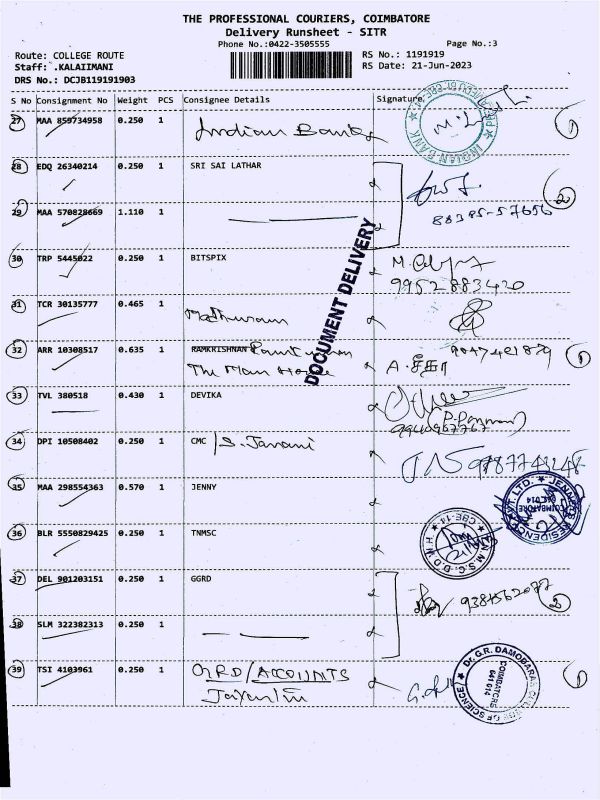 THE PROFESSIONAL COURIERS, COIMBATORE
Delivery Runsheet - SITR
Phone No.:0422-3505555 Page No.:3
Route: COLLEGE ROUTE RS No.: 1191919
Staff: .KALAIIMANI RS Date: 21-Jun-2023
DRS No.: DCJB119191903
S No Consignment No Weight PCS Consignee Details Signature
27 MAA 859734958 0.250 1 Indian Bank
INDIAN BANK
28 EDQ 26340214 0.250 1 SRI SAI LATHAR
29 MAA 570828669 1.110 1 88395-57656
DOCUMENT DELIVERY
30 TRP 5445022 0.250 1 BITSPIX
9952883420
31 TCR 30135777 0.465 1
32 ARR 10308517 0.635 1 RAMKRISHNAN
The Main House A. சீதா
33 TVL 380518 0.430 1 DEVIKA
34 DPI 10508402 0.250 1 CMC / S. Janani
35 MAA 298554363 0.570 1 JENNY
COIMBATORE
36 BLR 5550829425 0.250 1 TNMSC
CBE-14
37 DEL 901203151 0.250 1 GGRD
38 SLM 322382313 0.250 1
39 TSI 4103961 0.250 1 GRD/ACCOUNTS
Dr. G.R. DAMODARAN COLLEGE OF SCIENCE
COIMBATORE
641 014